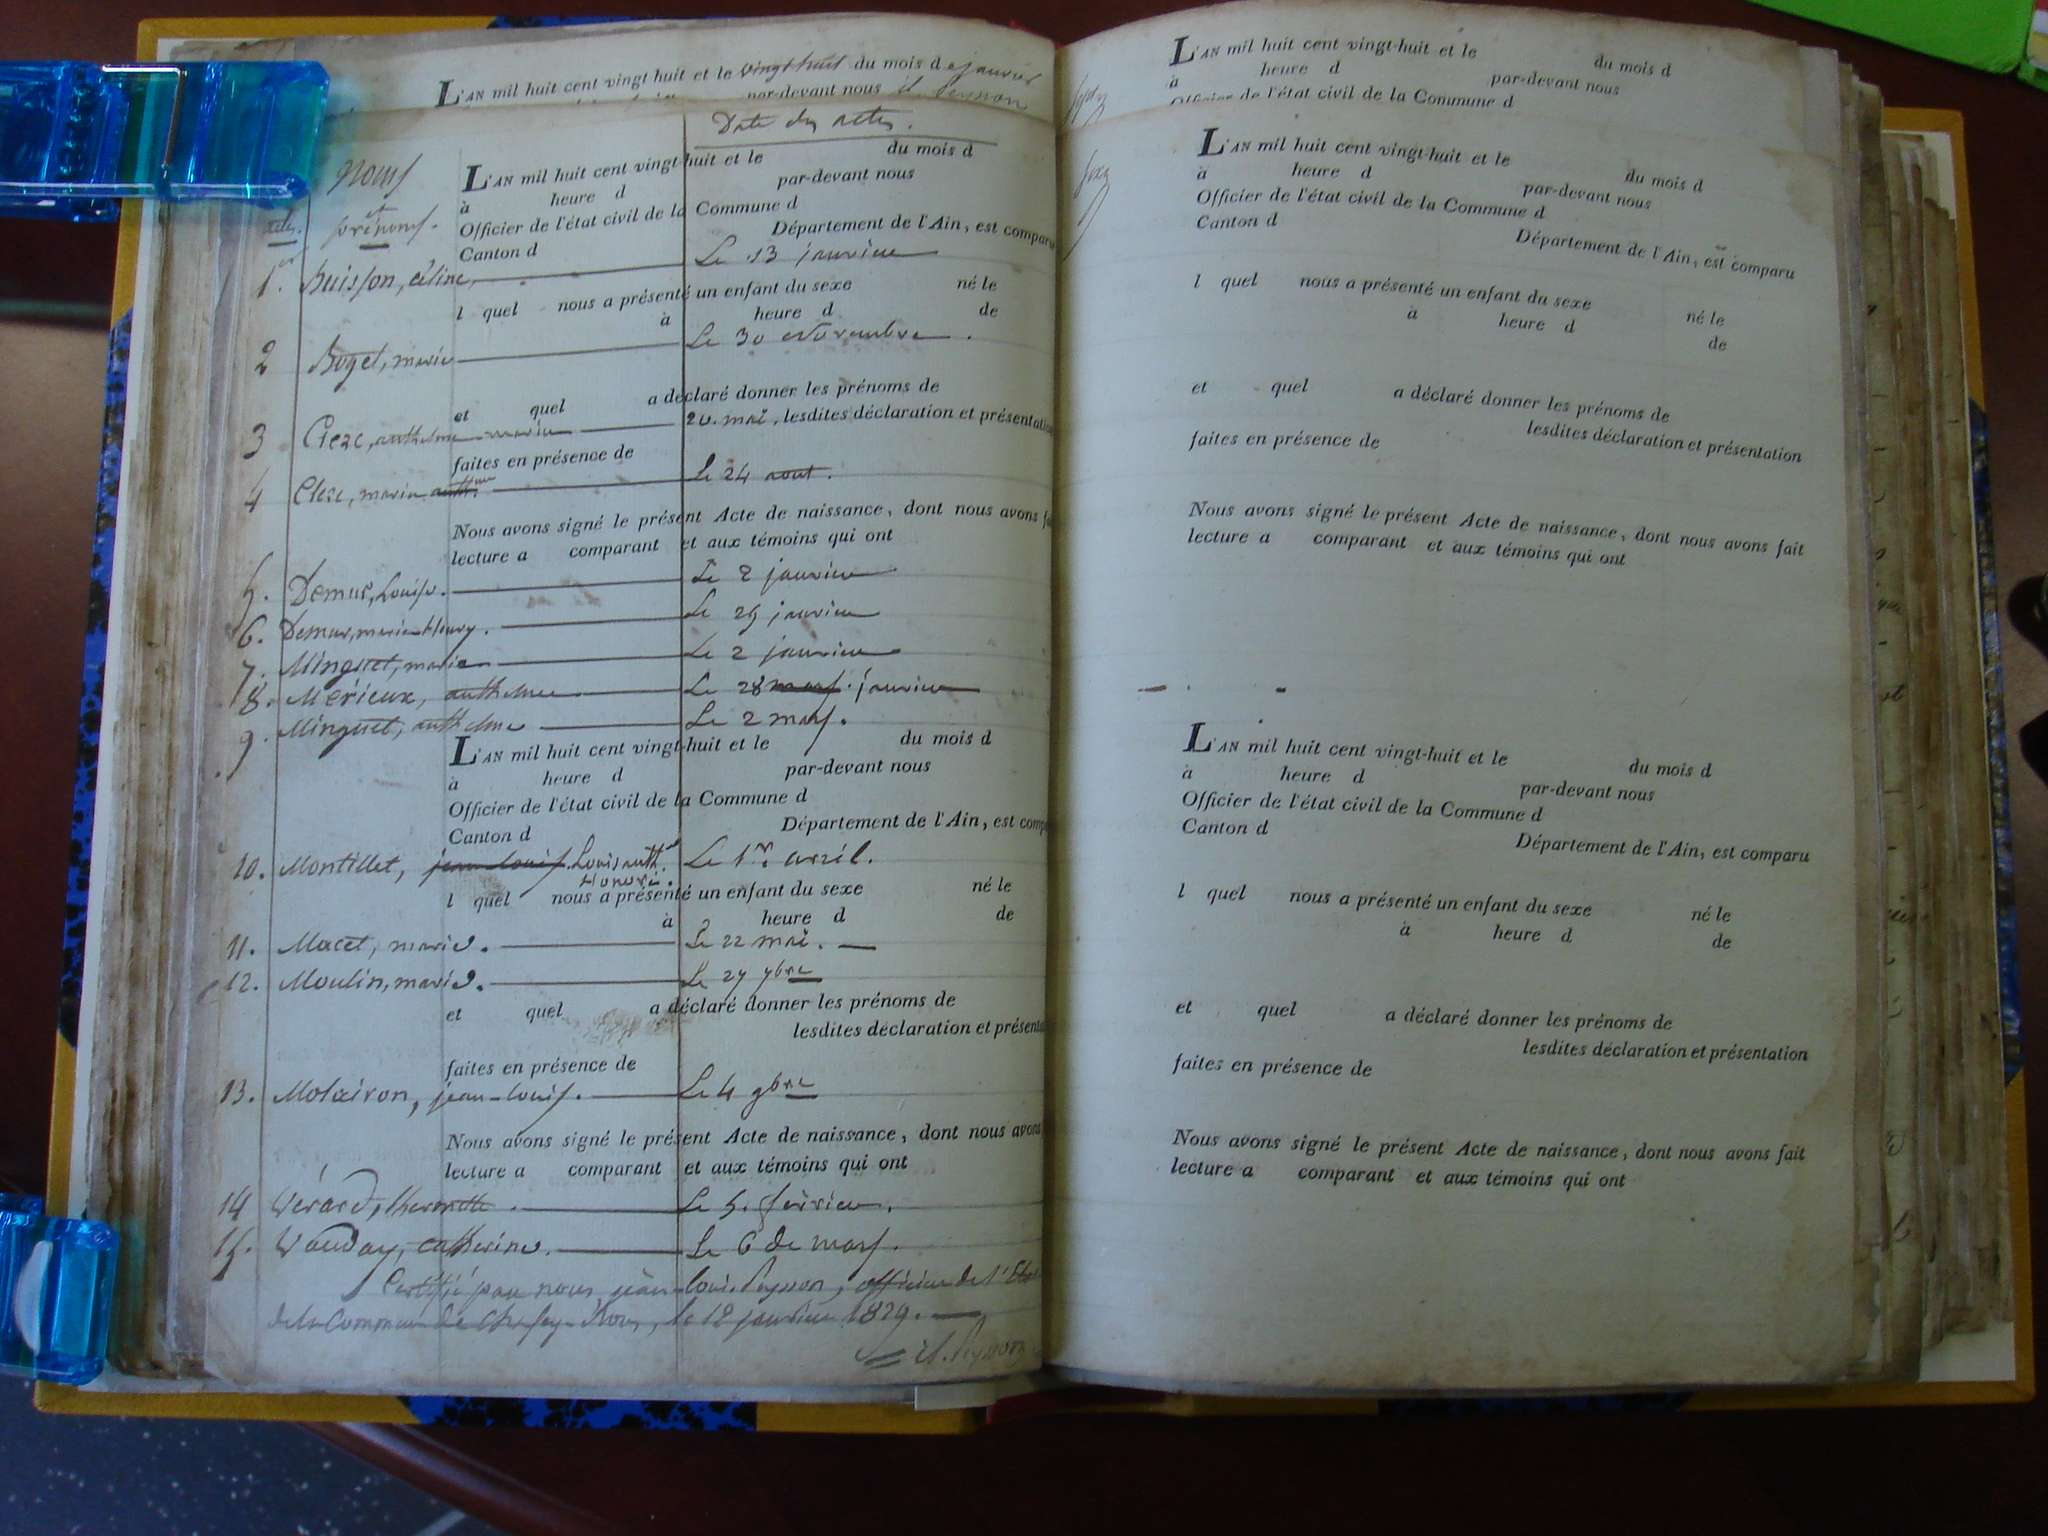 L'AN mil huit cent vingt huit et le vingt huit du mois de janvier
par-devant nous
Date des actes.
Noms
et
prénoms.
actes.
L'AN mil huit cent vingt-huit et le du mois d
à heure d par-devant nous
Officier de l'état civil de la Commune d
Canton d Département de l'Ain, est comparu
1er. Buisson, céline, Le 13 janvier
l quel nous a présenté un enfant du sexe né le
à heure d de
2 Boget, marie Le 30 Novembre.
a déclaré donner les prénoms de
et quel
lesdites déclaration et présentation
3 Clerc, anthelme marie 20. mai.
faites en présence de
4 Clerc, marie anth.me Le 24 aout.
Nous avons signé le présent Acte de naissance, dont nous avons fa
lecture a comparant et aux témoins qui ont
5. Demur, Louise. Le 2 janvier
6. Demur, marie fleury. Le 29 janvier
7. Minguet, marie Le 2 janvier
8. Mérieux, anthelme Le 28 mars. janvier
9. Minguet, anthelme Le 2 mars.
L'AN mil huit cent vingt-huit et le du mois d
à heure d par-devant nous
Officier de l'état civil de la Commune d
Canton d Département de l'Ain, est comp
10. Montillet, jean louis. Louis anth.e Le 1er. avril.
Honoré.
l quel nous a présenté un enfant du sexe né le
à heure d de
11. Macet, marie. Le 22 mai.
12. Moulin, marie. Le 27 7bre
et quel a déclaré donner les prénoms de
lesdites déclaration et présenta
faites en présence de
13. Molairon, jean-louis. Le 4 9bre
Nous avons signé le présent Acte de naissance, dont nous avons
lecture a comparant et aux témoins qui ont
14 Vérard, Le 5. février.
15. Vauday, catherine. Le 6 de mars.
Certifié par nous jean-louis Peysson, officier de l'Etat
de la Commune de le 12 janvier 1829.
L'AN mil huit cent vingt-huit et le du mois d
à heure d par-devant nous
Officier de l'état civil de la Commune d
L'AN mil huit cent vingt-huit et le du mois d
à heure d par-devant nous
Officier de l'état civil de la Commune d
Canton d Département de l'Ain, est comparu
l quel nous a présenté un enfant du sexe né le
à heure d de
et quel a déclaré donner les prénoms de
lesdites déclaration et présentation
faites en présence de
Nous avons signé le présent Acte de naissance, dont nous avons fait
lecture a comparant et aux témoins qui ont
L'AN mil huit cent vingt-huit et le du mois d
à heure d par-devant nous
Officier de l'état civil de la Commune d
Canton d Département de l'Ain, est comparu
l quel nous a présenté un enfant du sexe né le
à heure d de
et quel a déclaré donner les prénoms de
lesdites déclaration et présentation
faites en présence de
Nous avons signé le présent Acte de naissance, dont nous avons fait
lecture a comparant et aux témoins qui ont